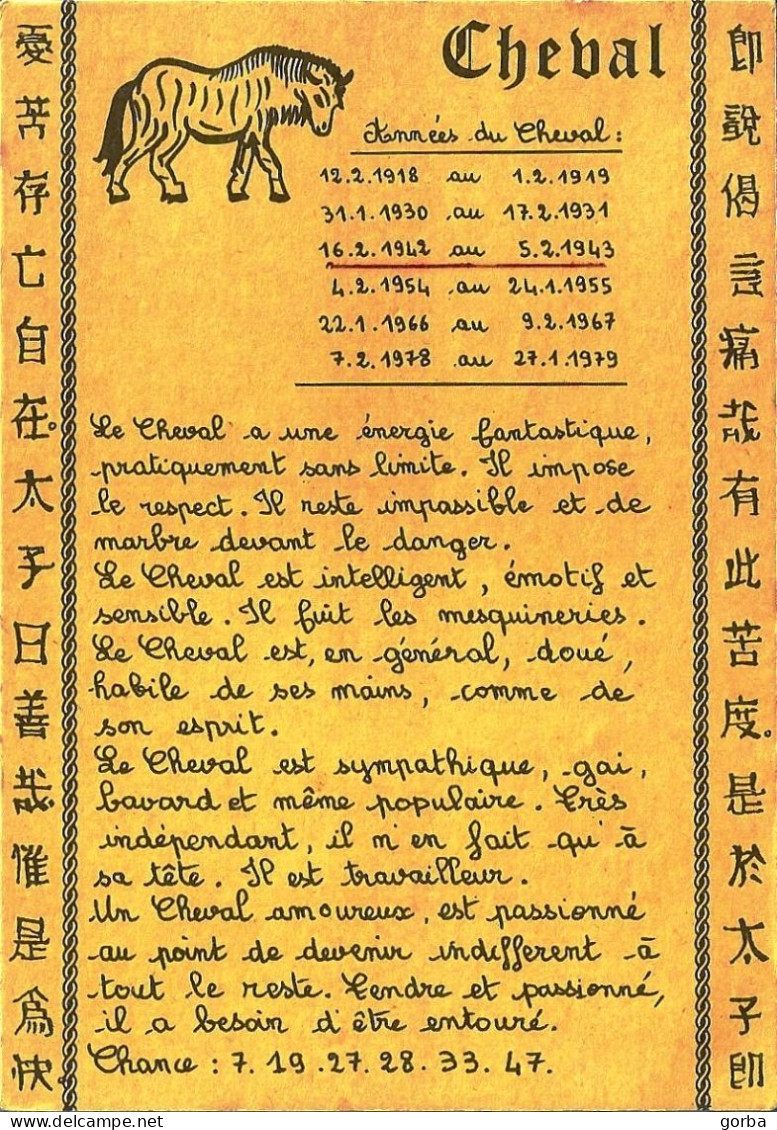 Cheval
Années du Cheval :
12.2.1918 au 1.2.1919
31.1.1930 au 17.2.1931
16.2.1942 au 5.2.1943
4.2.1954 au 24.1.1955
22.1.1966 au 9.2.1967
7.2.1978 au 27.1.1979
Le Cheval a une énergie fantastique,
pratiquement sans limite. Il impose
le respect. Il reste impassible et de
marbre devant le danger.
Le Cheval est intelligent, émotif et
sensible. Il fuit les mesquineries.
Le Cheval est, en général, doué,
habile de ses mains, comme de
son esprit.
Le Cheval est sympathique, gai,
bavard et même populaire. Très
indépendant, il n'en fait qu'à
sa tête. Il est travailleur.
Un Cheval amoureux, est passionné
au point de devenir indifferent à
tout le reste. Tendre et passionné,
il a besoin d'être entouré.
Chance : 7. 19. 27. 28. 33. 47.
即說偈言痛哉有此苦度。是於太子即
憂苦存亡自在。太子曰善哉惟是為快。
www.delcampe.net
gorba